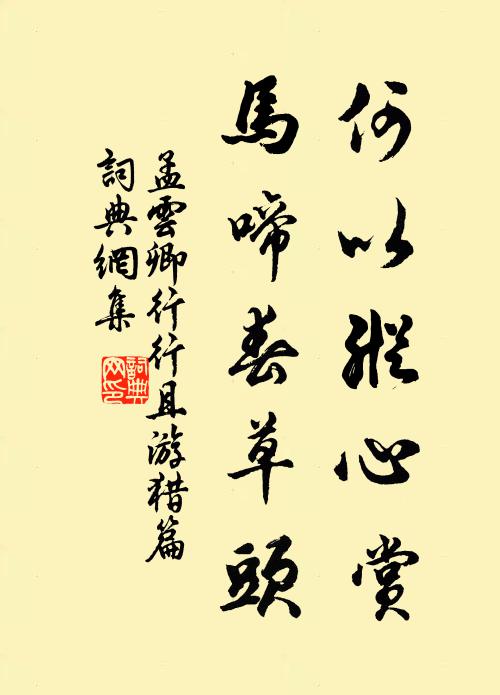 何以縱心賞
馬啼春草頭
孟雲卿行行且游猎篇
詞典網集
詞典網印